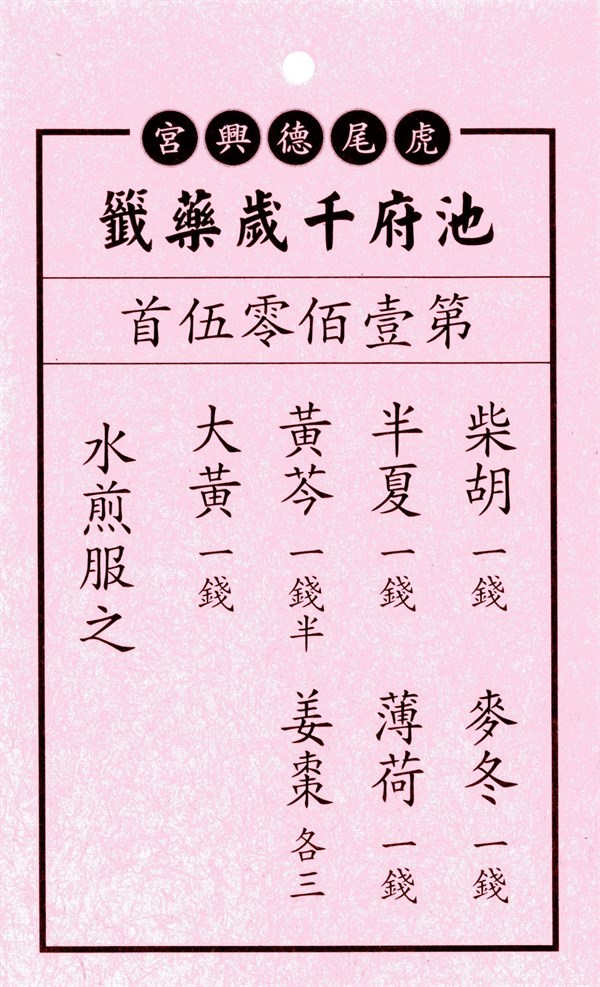 虎尾德興宮
池府千歲藥籤
第壹佰零伍首
柴胡 一錢 麥冬 一錢
半夏 一錢 薄荷 一錢
黃芩 一錢半 姜棗 各三
大黃 一錢
水煎服之